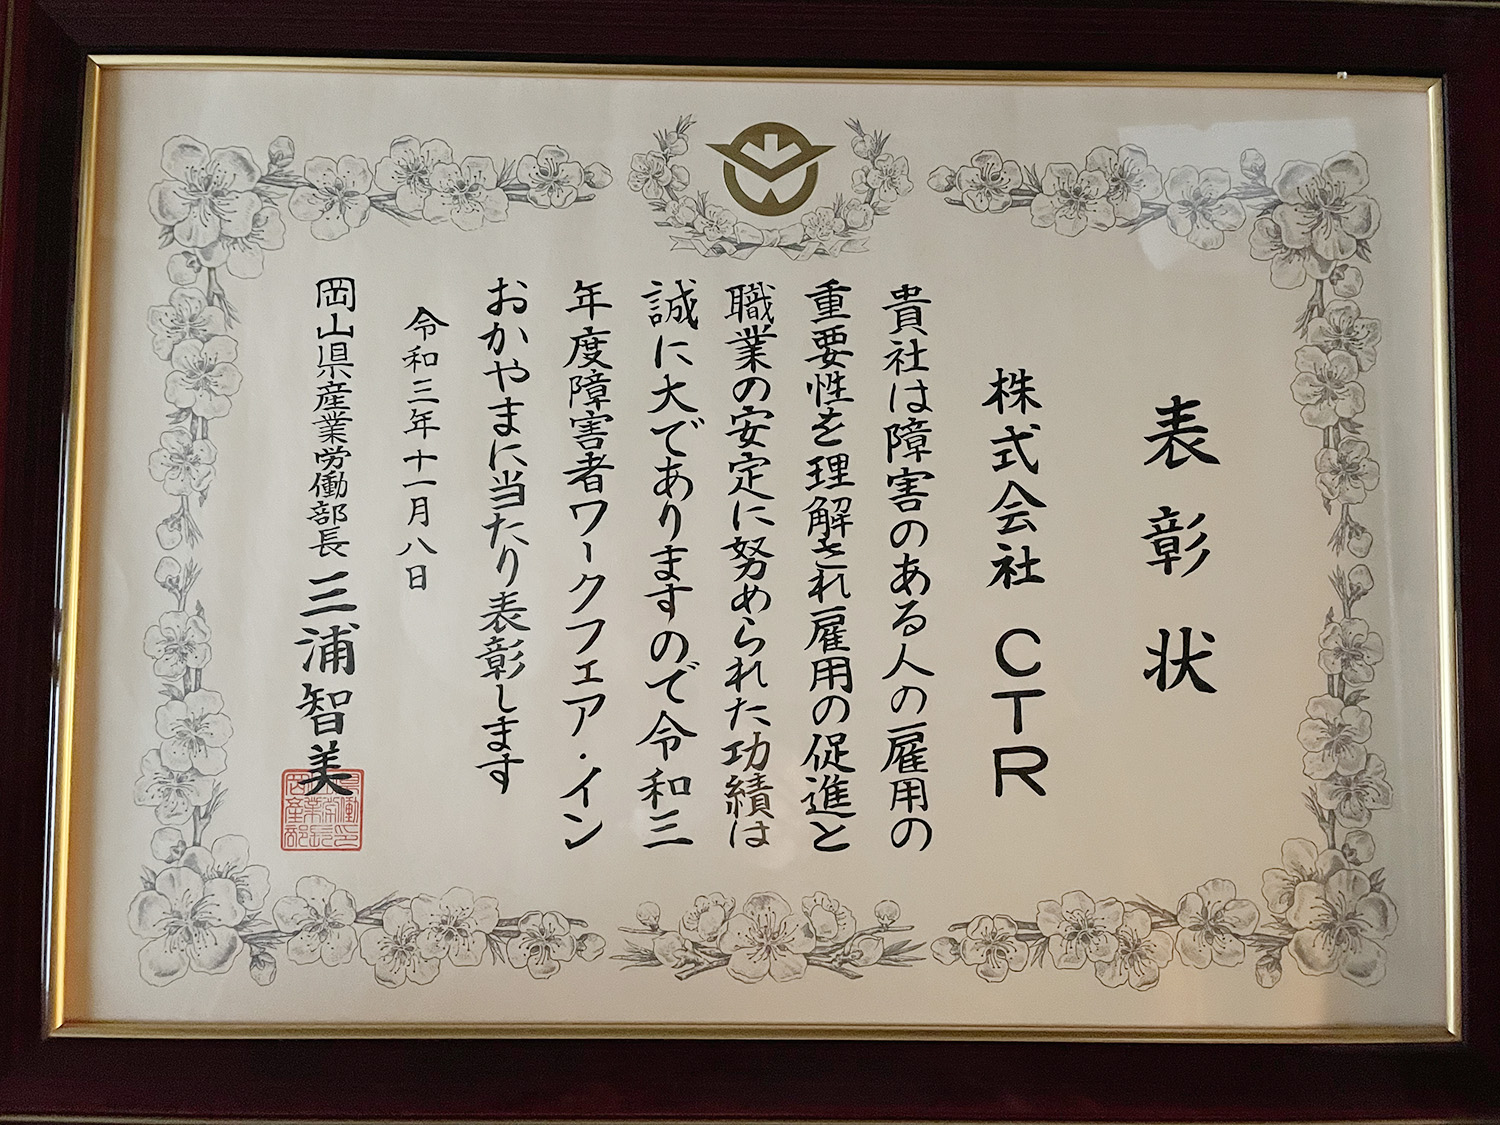 表彰状
株式会社 CTR
貴社は障害のある人の雇用の
重要性を理解され雇用の促進と
職業の安定に努められた功績は
誠に大でありますので令和三
年度障害者ワークフェア・イン
おかやまに当たり表彰します
令和三年十一月八日
岡山県産業労働部長 三浦智美